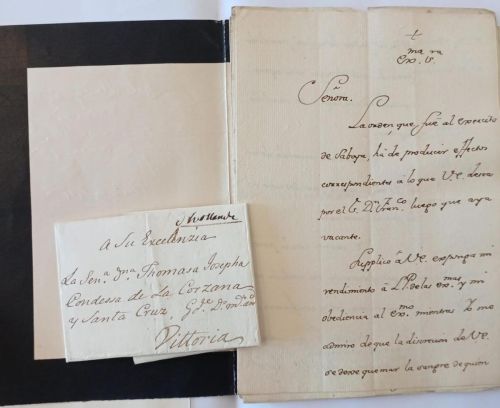 A Su Excelenzia
La Sen.ª Dña Thomasa Josepha
Condessa de La Corzana
y Santa Cruz, Gde
Vittoria
+
ma ra
ex. S.
Señora.
La orden, que fuè al exercito
de Saboya, hà de producir effectos
correspondientes à lo que V.e. desea
por el S.r D.n Fran.co luego que aya
vacante.
Supplico à V.e. exponga mi
rendimiento à de las ex.mas y mi
obediencia al ex.mo mientras yo me
admiro de que la discrecion de V.e.
se desve quemar la sangre de quien